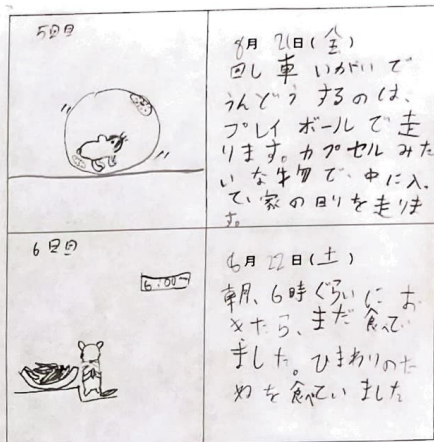 5日目
8月21日(金)
回し車いがいで
うんどうするのは、
プレイボールで走
ります。カプセルみた
いな物で、中に入っ
て家の周りを走りま
す。
6日目
6:00
8月22日(土)
朝、6時ぐらいにお
きたら、まだ食べてい
ました。ひまわりのた
ねを食べていました